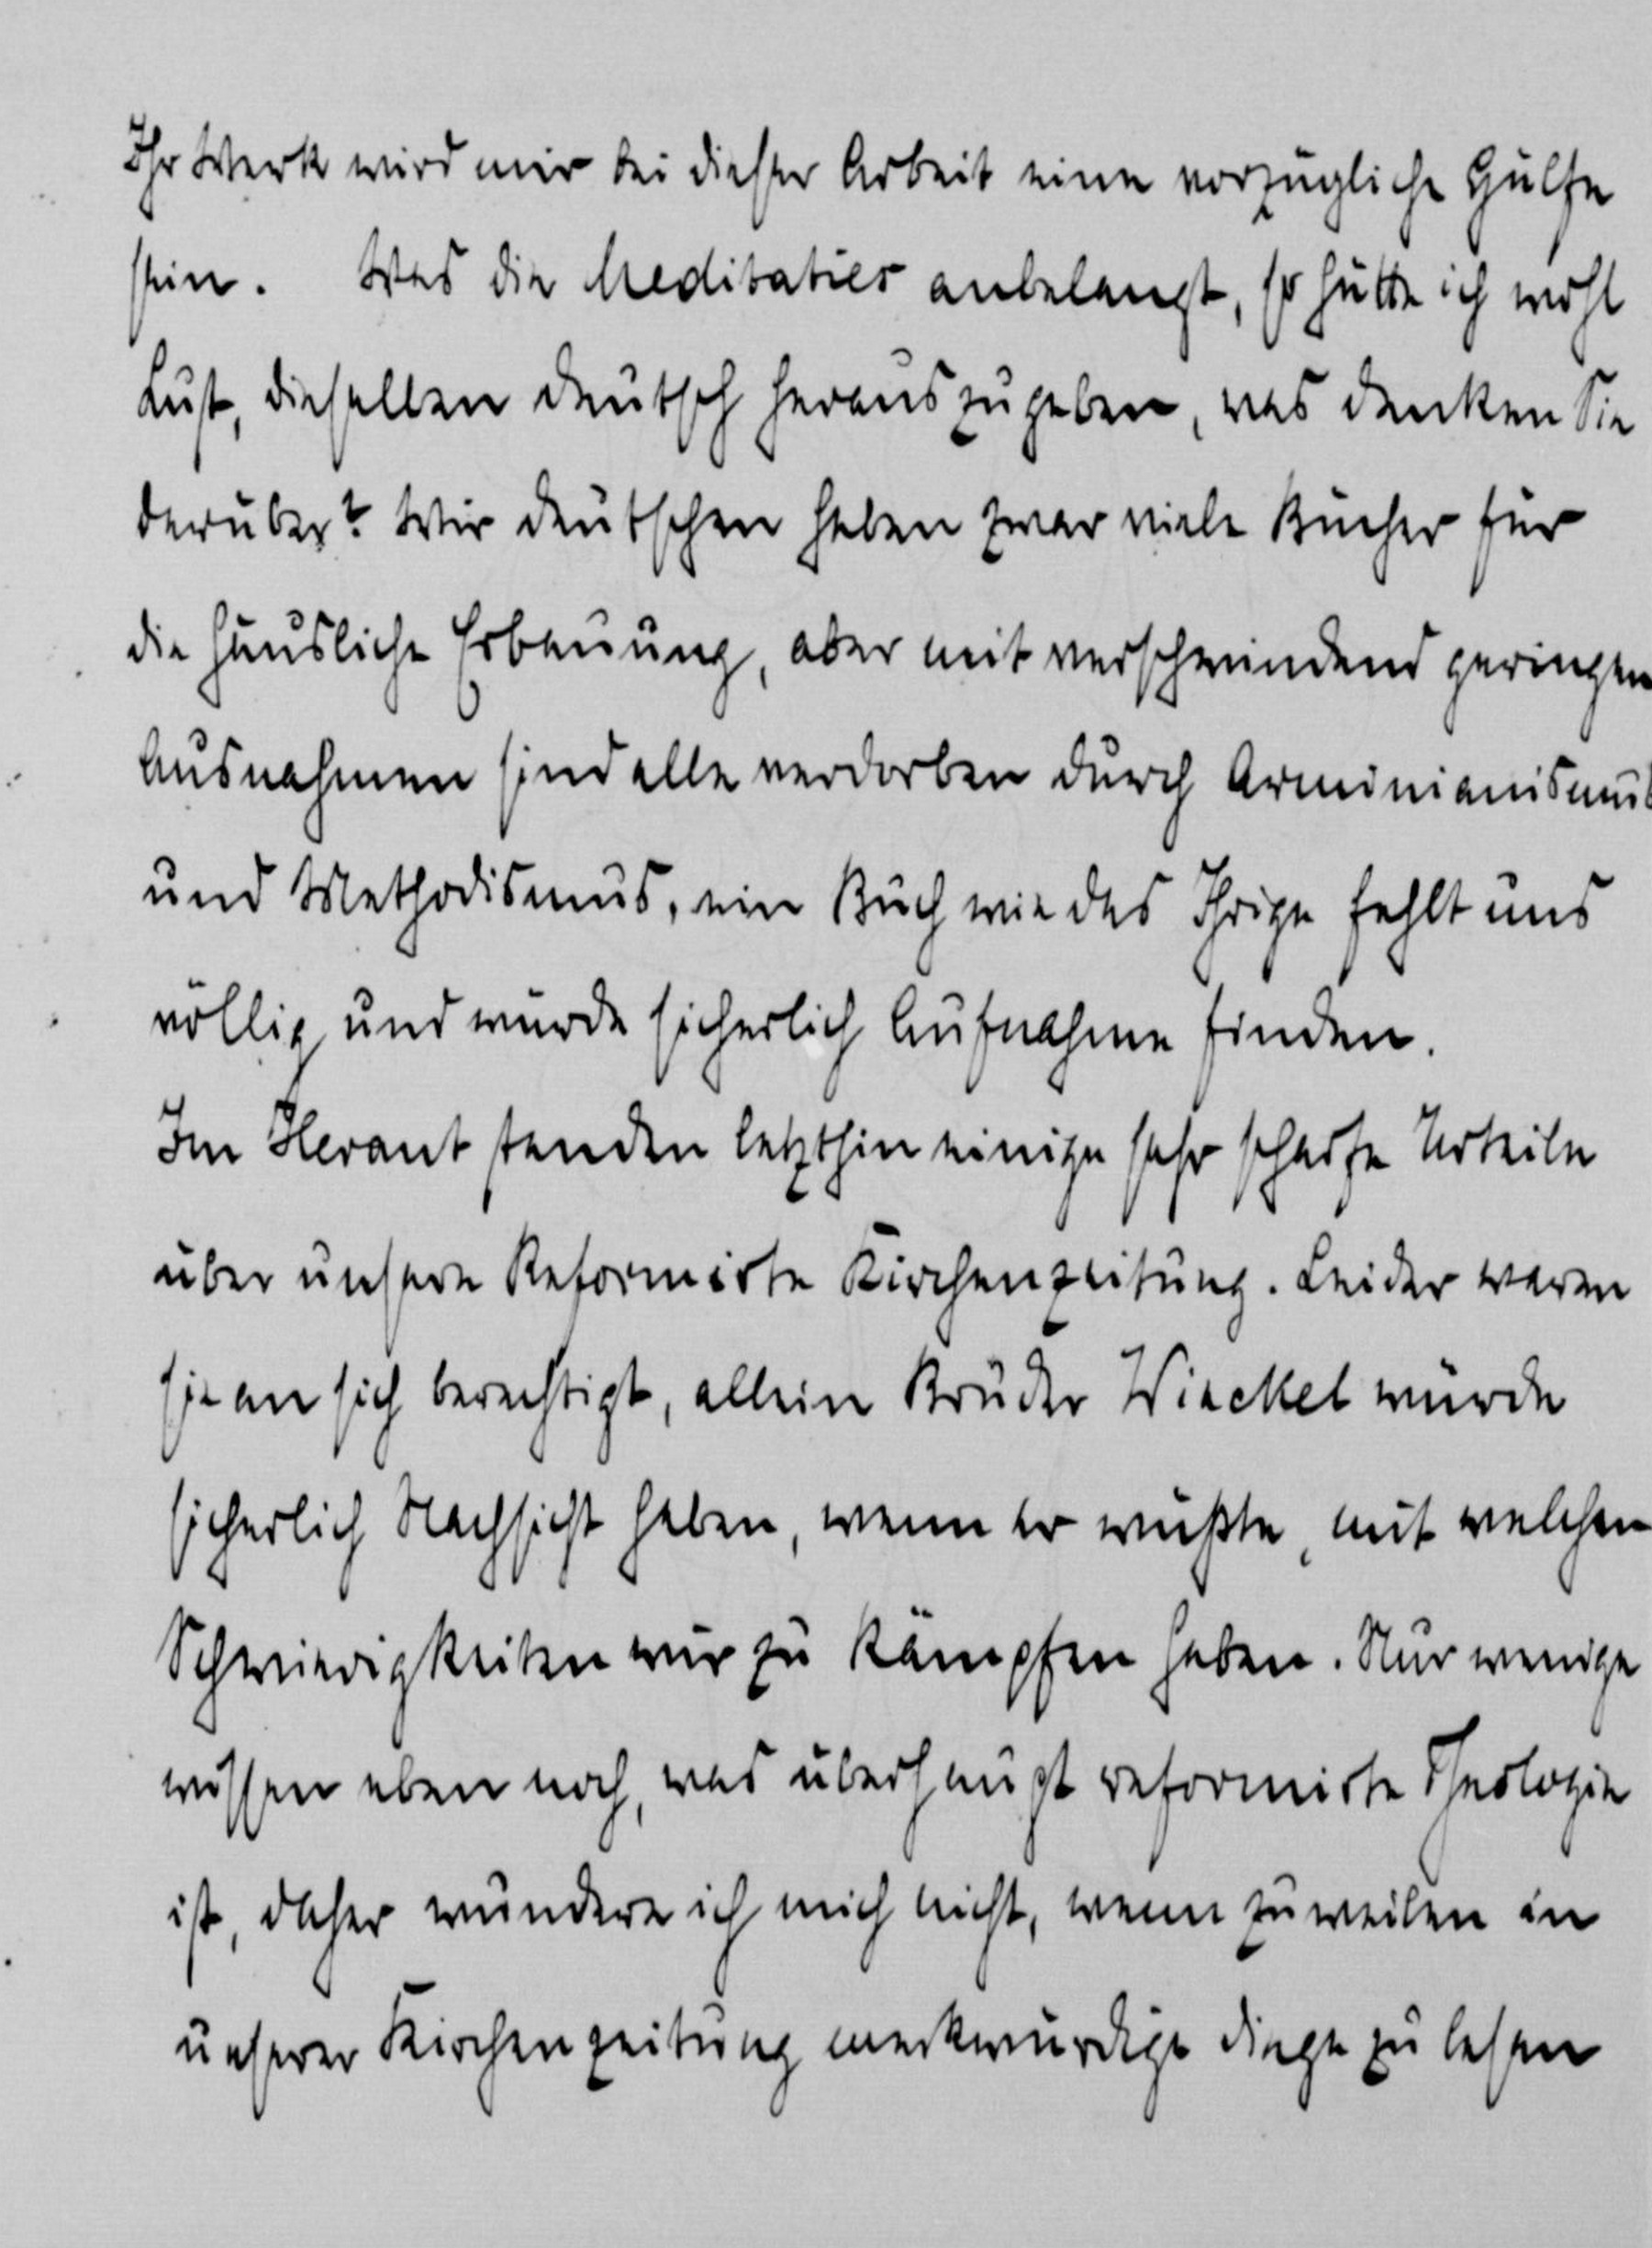 Ihr Werk wird mir bei dieser Arbeit eine vorzügliche Hülfe
sein. Was die Meditaties anbelangt, so hätte ich wohl
Lust, dieselben deutsch herauszugeben, was denken Sie
darüber? Wir deutschen haben zwar viele Bücher für
die häusliche Erbauung, aber mit verschwindend geringen
Ausnahmen sind alle verdorben durch Arminianismus
und Methodismus, ein Buch wie das Ihrige fehlt uns
völlig und würde sicherlich Aufnahme finden.
Im Heraut standen letzthin einige sehr scharfe Urteile
über unsere Reformirte Kirchenzeitung. Leider waren
sie an sich berechtigt, allein Bruder Winckel würde
sicherlich Nachsicht haben, wenn er wüßte, mit welchen
Schwierigkeiten wir zu kämpfen haben. Nur wenige
wissen eben noch, was überhaupt reformirte Theologie
ist, daher wundere ich mich nicht, wenn zuweilen in
unserer Kirchenzeitung merkwürdige dinge zu lesen